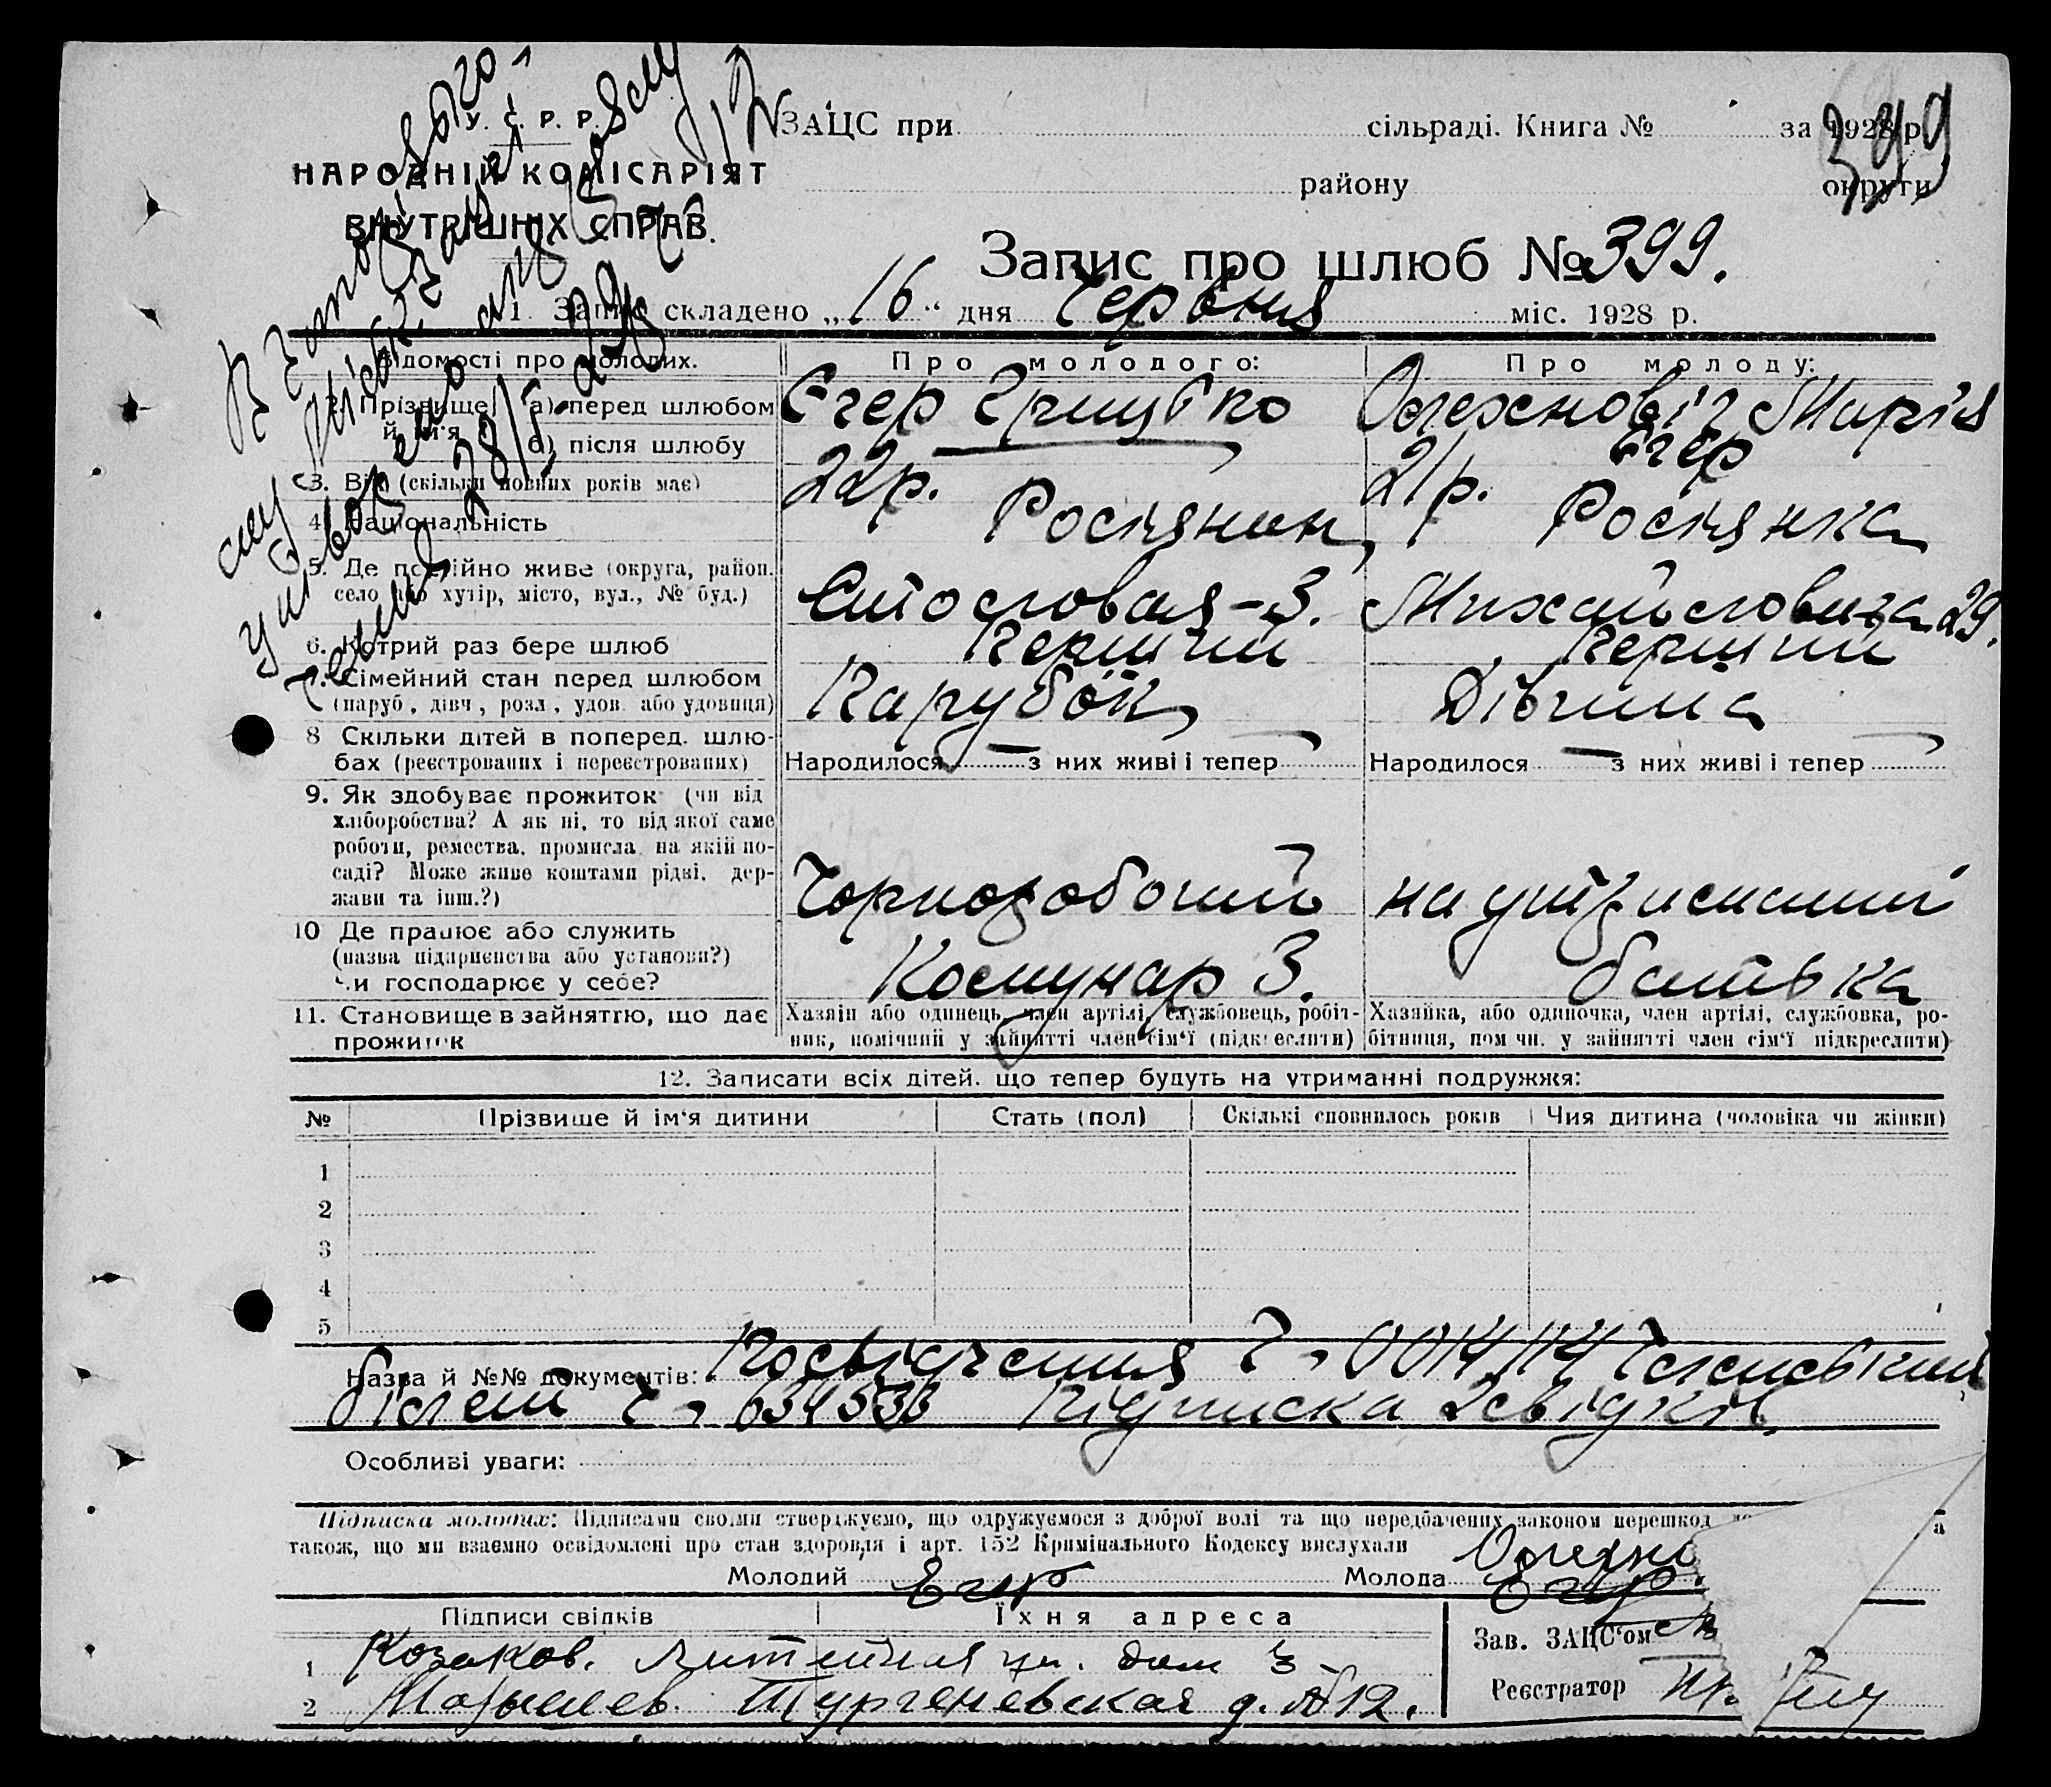 У. С. Р. Р.
НАРОДНІЙ КОМІСАРІЯТ
ВНУТРІШНІХ СПРАВ.
ЗАЦС при сільраді. Книга № за 1928 р.
399
району округи
Запис про шлюб № 399.
1. Запис складено „16“ дня Червня міс. 1928 р.
Відомості про молодих. Про молодого: Про молоду:
2. Прізвище й ім'я а) перед шлюбом Єгер Грицько Олехновіч Марія
б) після шлюбу Єгер
3. Вік (скільки повних років має) 22р. 21р.
4. Національність Росіянин Росіянка
5. Де постійно живе (округа, район.
село або хутір, місто, вул., № буд.) 3. 29.
6. Котрий раз бере шлюб Перший Перший
7. Сімейний стан перед шлюбом
(паруб., дівч., розл., удов. або удовиця) Парубок Дівчина
8 Скільки дітей в поперед. шлю-
бах (реєстрованих і нереєстрованих) Народилося — з них живі і тепер Народилося — з них живі і тепер
9. Як здобуває прожиток (чи від
хліборобства? А як ні, то від якої саме
роботи, ремества, промисла, на якій по-
саді? Може живе коштами рідні, дер-
жави та інш.?) Чорноробочий на утриманні
10 Де працює або служить
(назва підприємства або установи?)
чи господарює у себе? Комунар 3. батька
11. Становище в зайняттю, що дає
прожиток
Хазяїн або одинець, член артілі, службовець, робіт-
ник, помічний у зайнятті член сім'ї (підкреслити)
Хазяйка, або одиночка, член артілі, службовка, ро-
бітниця, помічн. у зайнятті член сім'ї підкреслити)
12. Записати всіх дітей. що тепер будуть на утриманні подружжя:
№ Прізвище й ім'я дитини Стать (пол) Скількі сповнилось років Чия дитина (чоловіка чи жінки)
1
2
3
4
5
Назва й №№ документів: Посвідчення Ч. 0014114
білет ч. 634533 Підписка 2 свідків.
Особливі уваги:
Підписка молодих: Підписами своїми стверджуємо, що одружуємося з доброї волі та що передбачених законом перешкод
також, що ми взаємно освідомлені про стан здоровля і арт. 152 Кримінального Кодексу вислухали
Молодий Егер Молода Егер
Підписи свідків Їхня адреса
1 Козаков. Литейная ул. дом 3
2 Тургеневская д. №12.
Зав. ЗАЦС'ом
Реєстратор